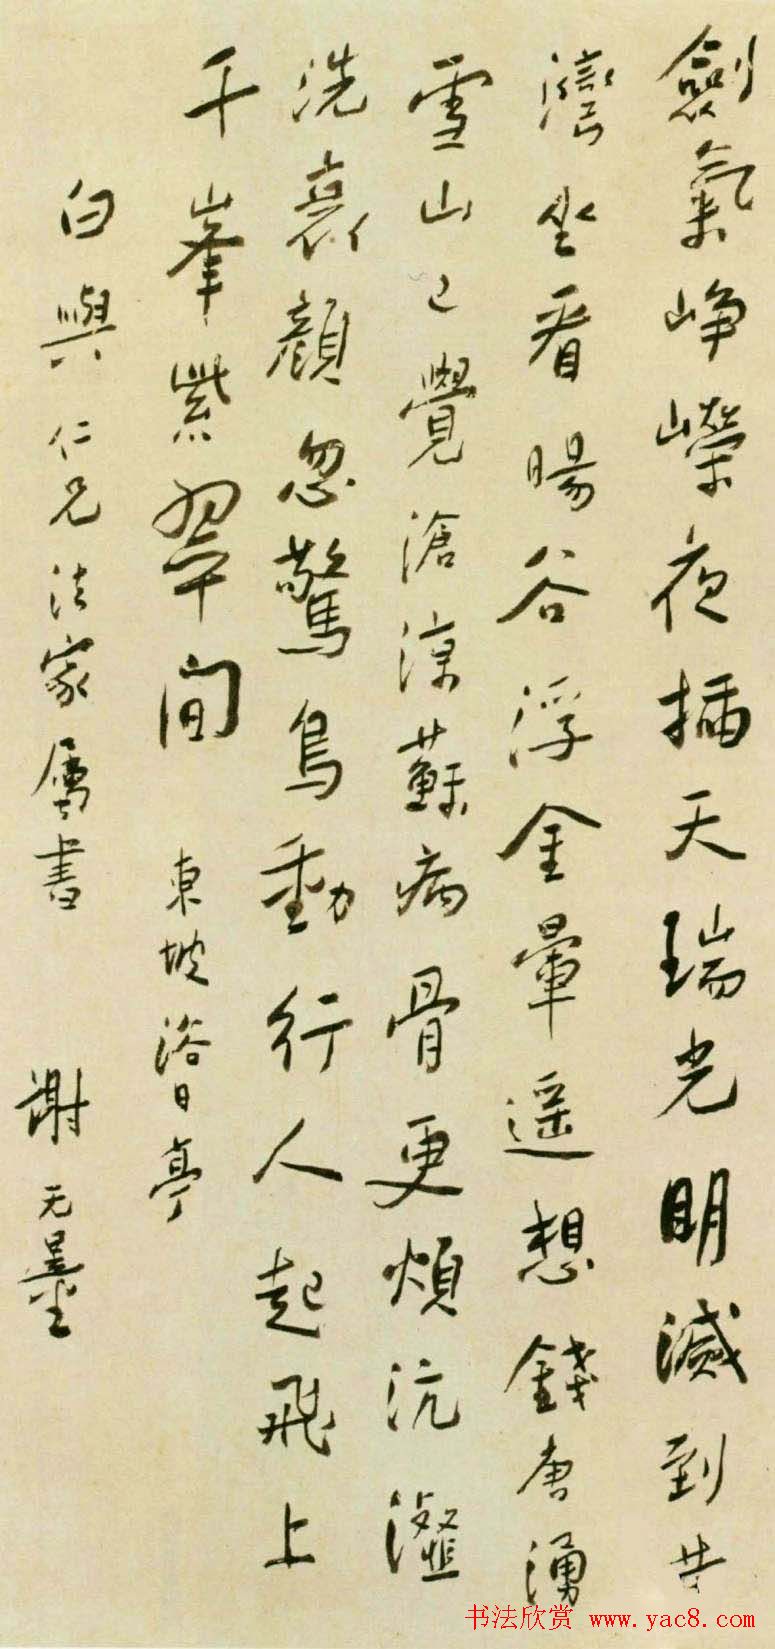 劍氣崢嶸夜插天瑞光明滅到
灣坐看暘谷浮金暈遥想錢唐湧
雪山已覺滄涼蘇病骨更煩沆瀣
洗衰顏忽驚鳥動行人起飛上
千峯紫翠間 東坡浴日亭
白與仁兄法家屬書 謝无量
书法欣赏 www.yac8.com